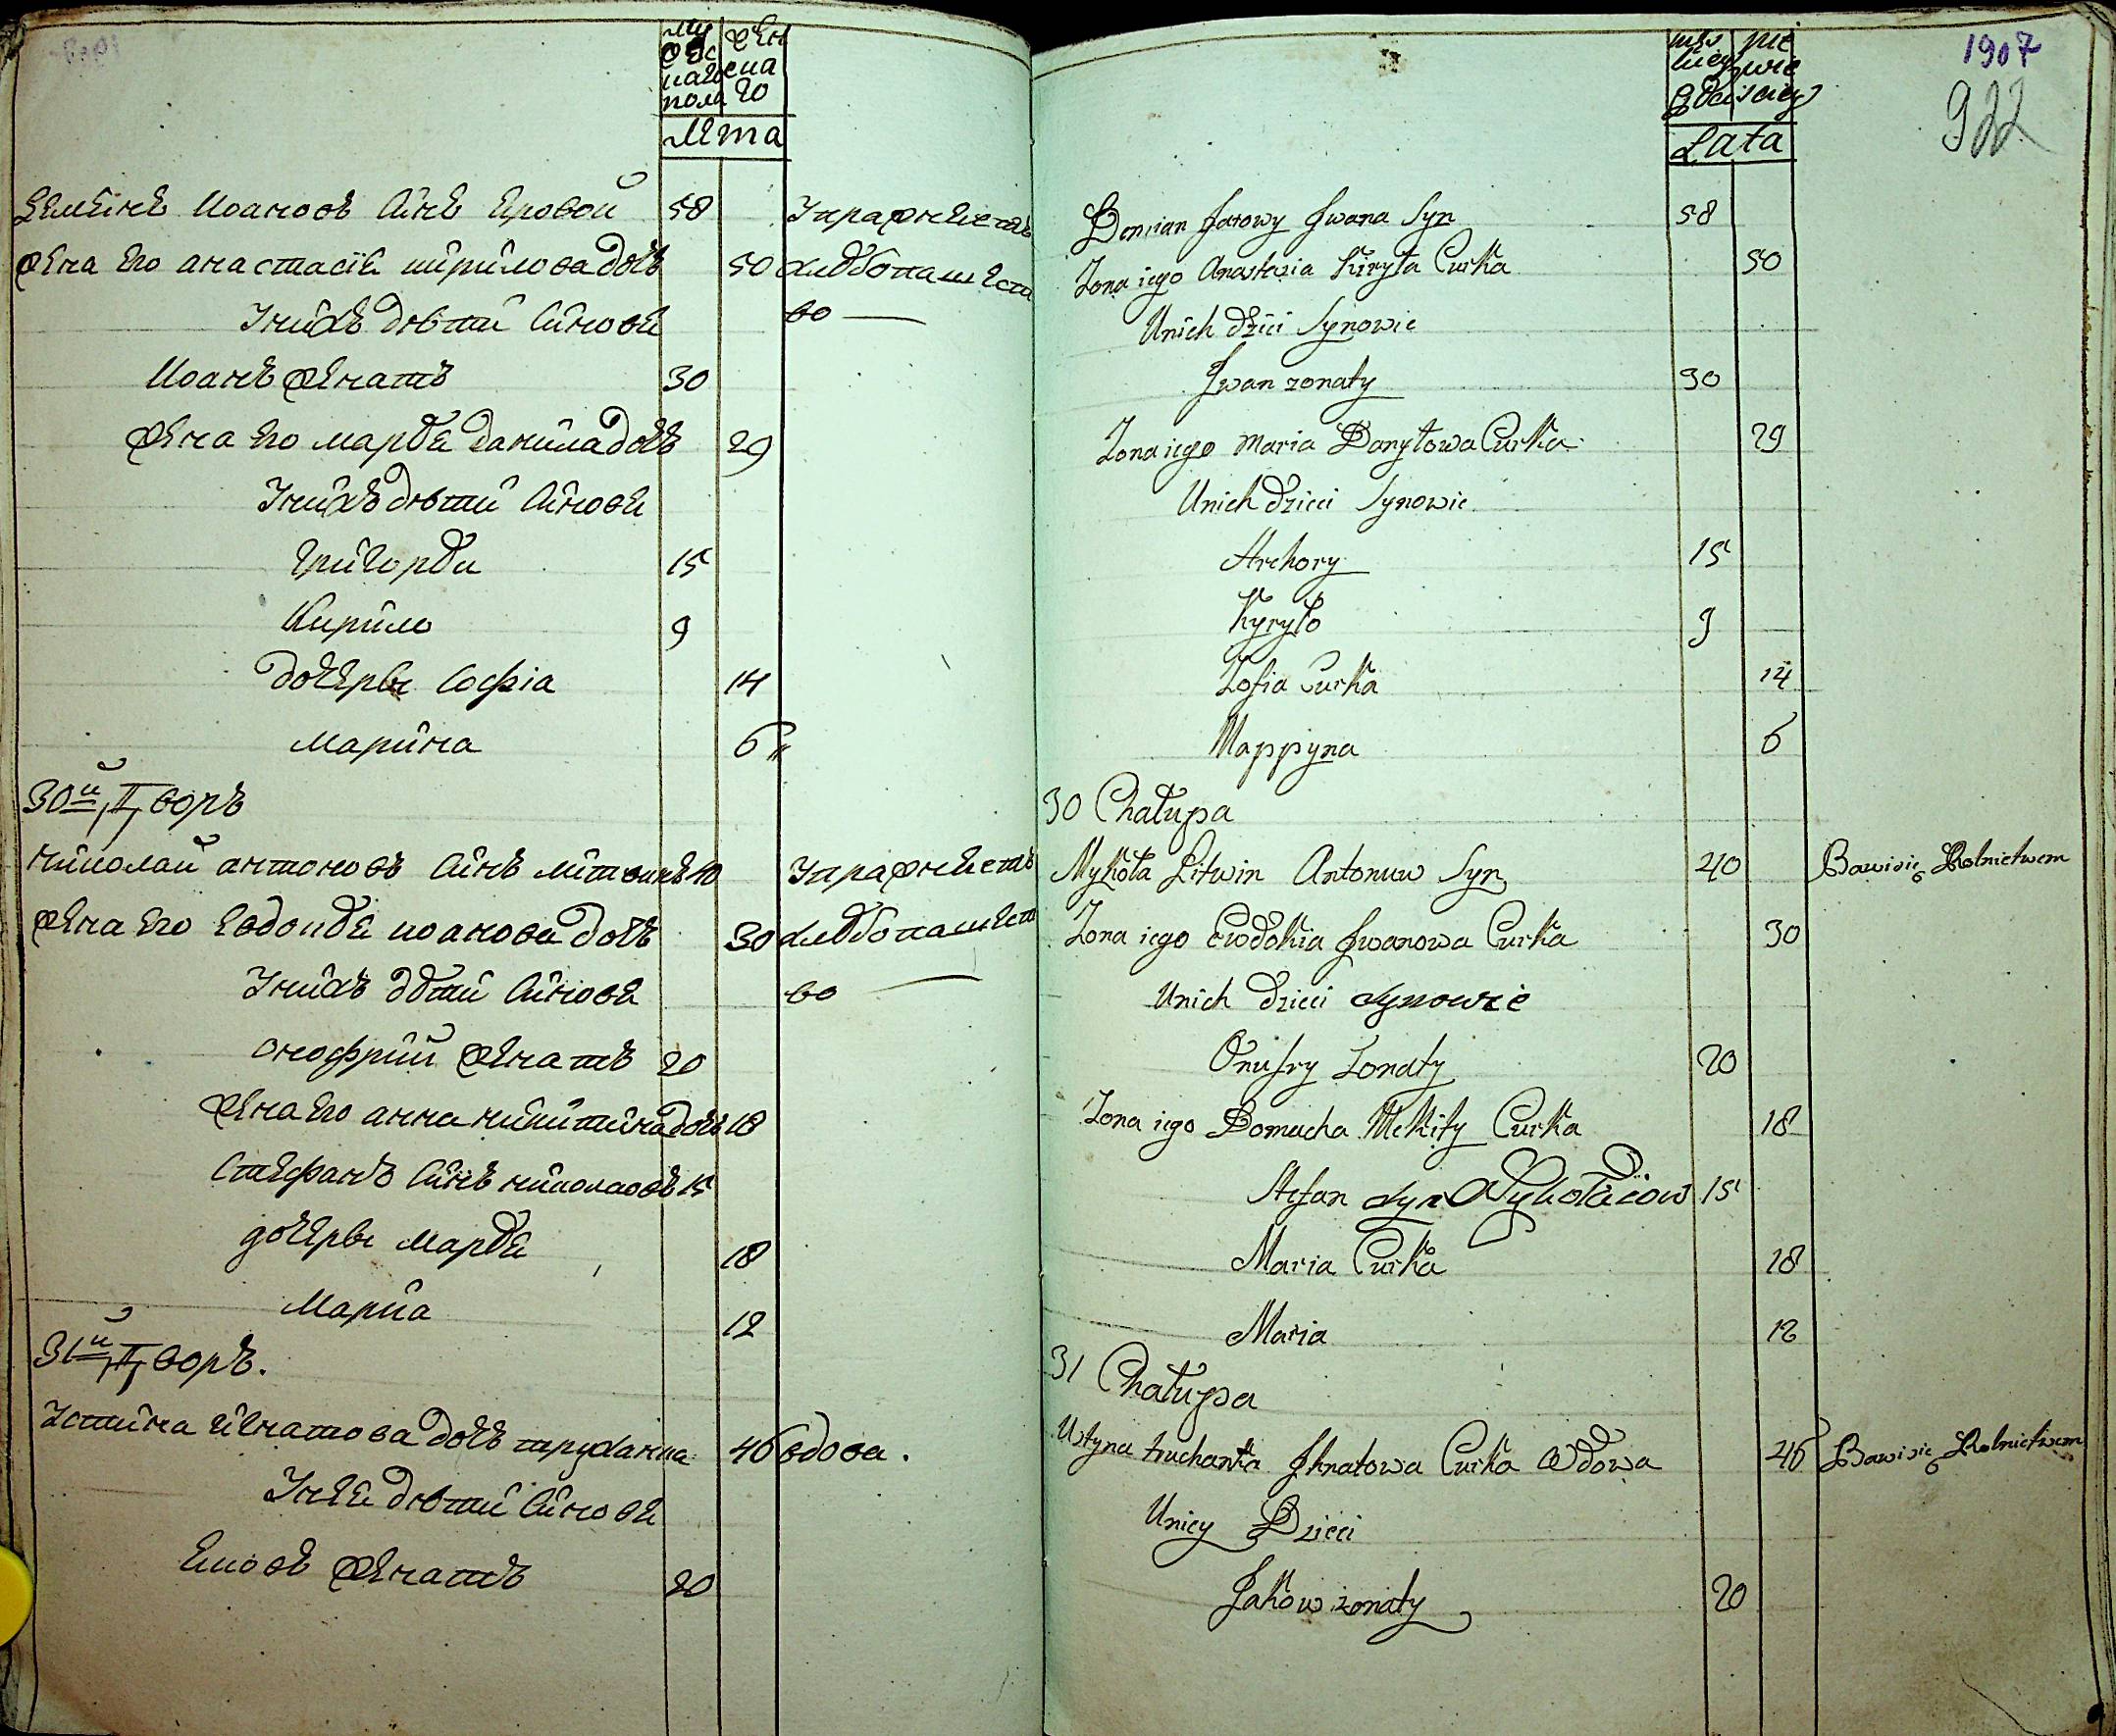 му жен
жес ска
каго го
пола
Лѣта
Демѣянъ Иоановъ Синъ Яровой 58 Упражнѣетъ
жена его анастасіѣ кирилова дочъ 50 хлѣбопашест
Уних дѣти Синове во
Иоанъ женатъ 30
жена его марѣѣ данила дочъ 29
Унихъ дѣти Синове
Григорѣй 15
Кирило 9
дочеръ Софія 14
марина 6
30й Дворъ
николай антоновъ Синъ литвинъ 40 Упражнѣетъ
жена его Евдокѣѣ иоанова дочъ 30 хлѣбопашест
Унихъ дѣти Синове во
онофрий женатъ 20
жена его анна никитина дочъ 18
Стефанъ Синъ николаовъ 15
дочеръ марѣѣ 18
Мариа 12
31й Дворъ.
Устина игнатова дочъ труханка 46 вдова.
Унее дѣти Синове
Яковъ женатъ 20
1907
922
Lata
Demian Jarowy Jwana Syn 58
Zona iego Anastazia Kiryła Curka 50
Unich dzici Synowie
Jwan zonaty 30
Zona iego Maria Danyłowa Curka 29
Unich dzieci Synowie
Hrehory 15
Kyryło 9
Zofia Curka 14
Marryna 6
30 Chałupa
Mykoła Litwin Antonuw Syn 40 Bawi się Rolnictwem
Zona iego Ewdokia Jwanowa Curka 30
Unich dzieci Synowie
Onufry Zonaty 20
Zona iego Domucha Mekity Curka 18
Stefan Syn Mykołaiow 15
Maria Curka 18
Maria 12
31 Chałupa
Ustyna truchanka Jhnatowa Curka Wdowa 46 Bawi się Rolnictwem
Unicy Dzieci
Jakow zonaty 20